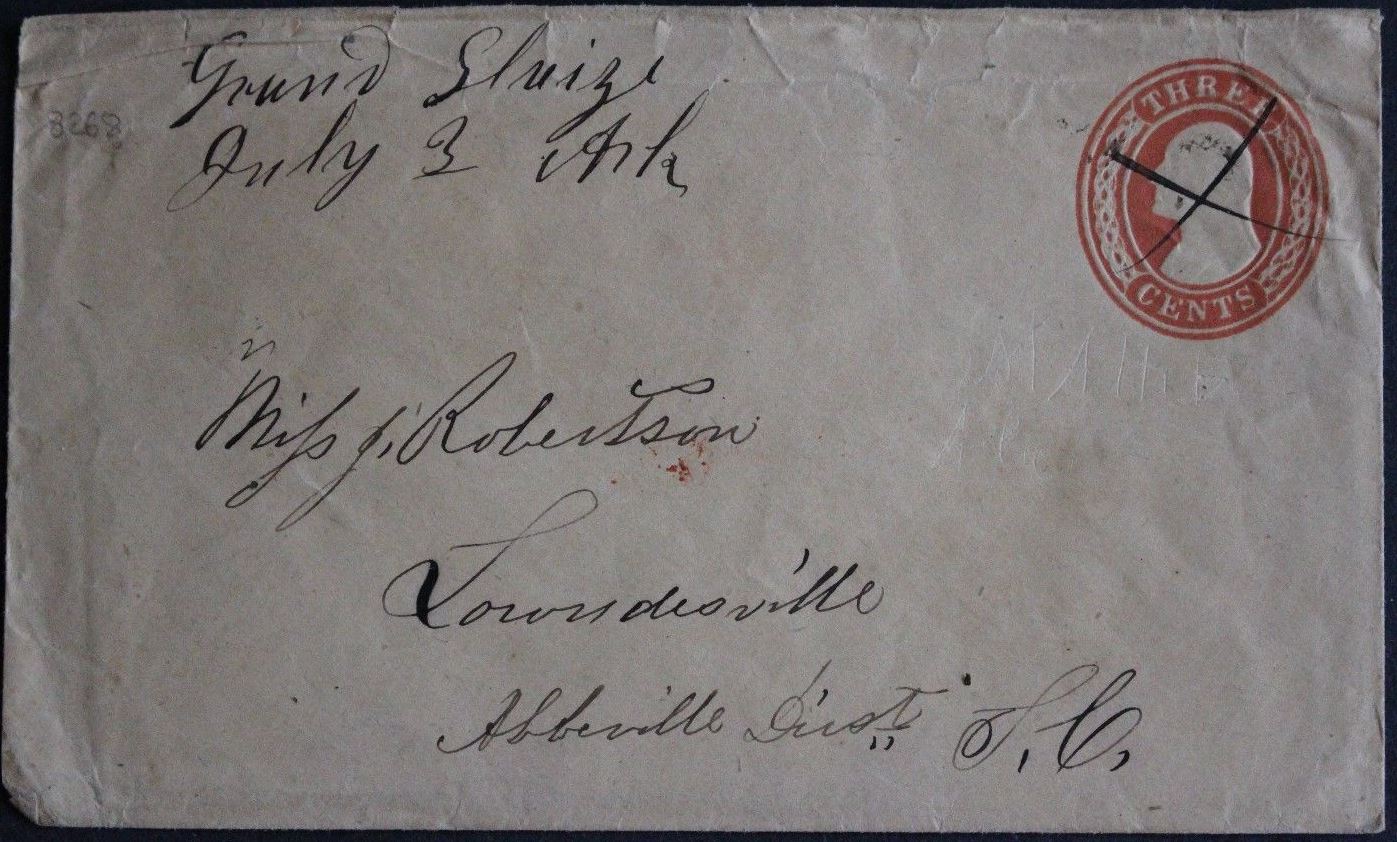 Grand Gluize
July 3 Ark
THREE
CENTS
8268
Miss J. Robertson
Lowndesville
Abbeville Dist S.C.